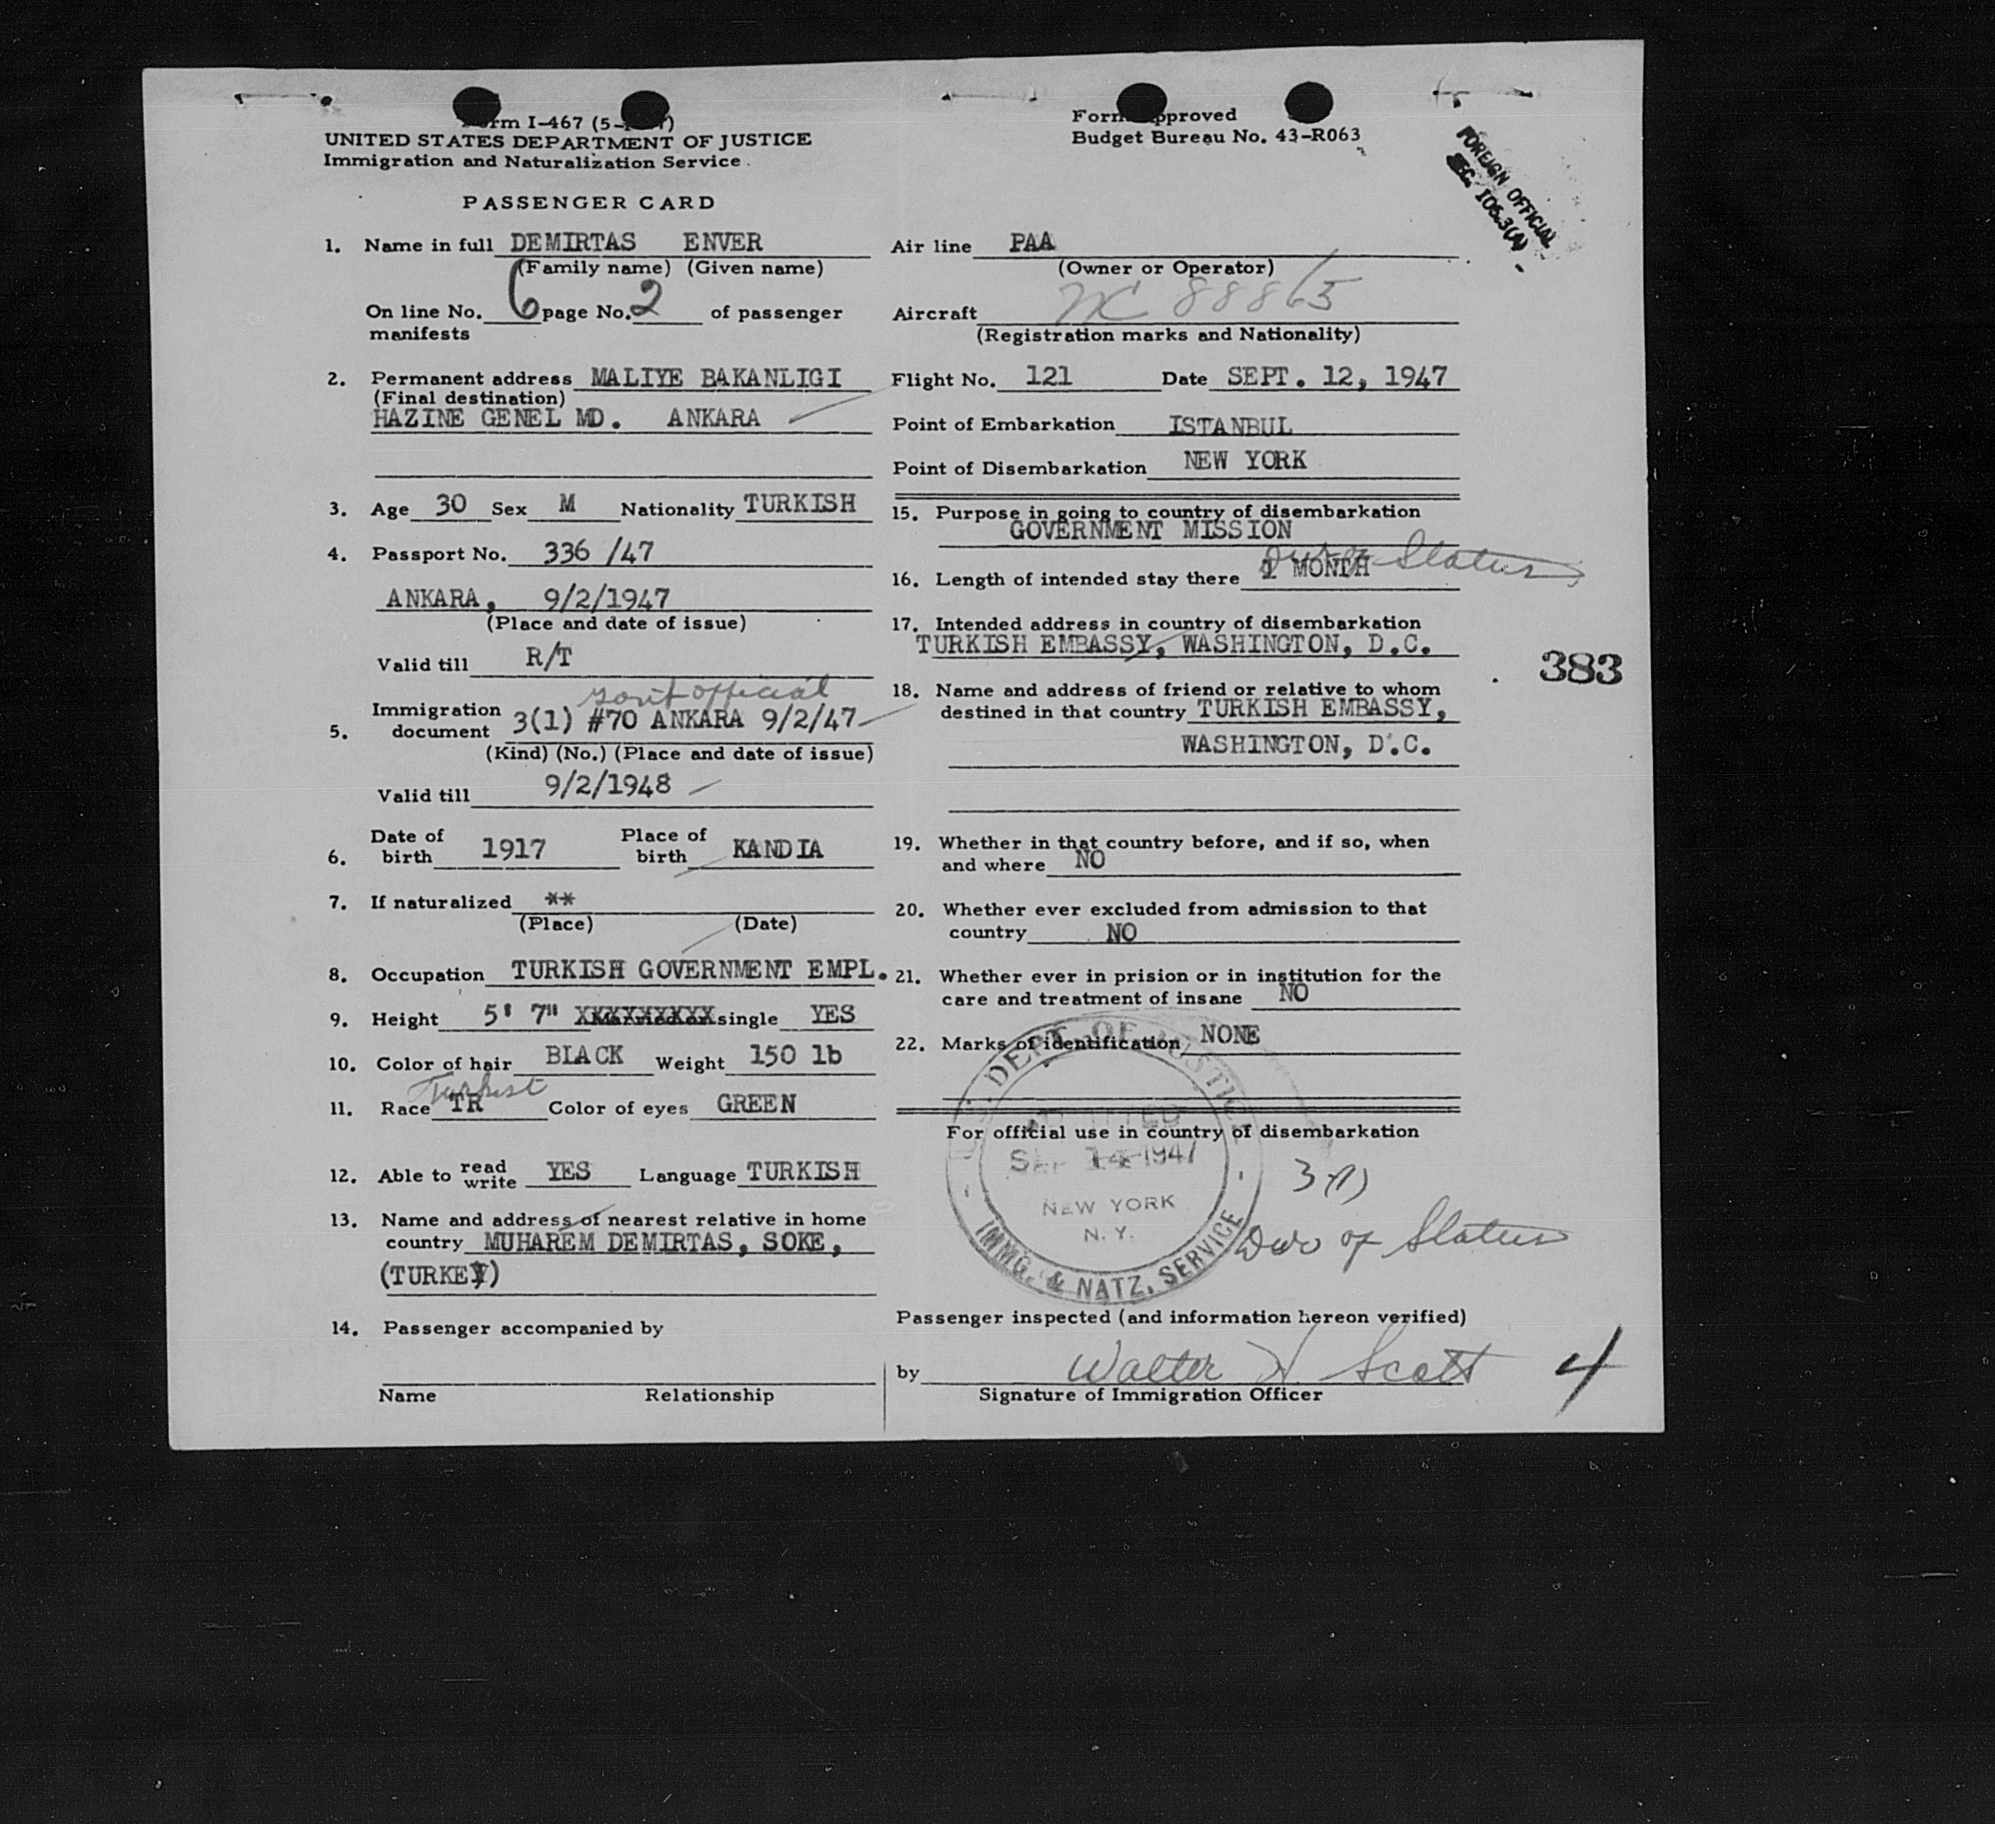 Form I-467 (5-
UNITED STATES DEPARTMENT OF JUSTICE
Immigration and Naturalization Service
PASSENGER CARD
Form Approved
Budget Bureau No. 43-R063
FOREIGN OFFICIAL
SEC. 105.3(A)
1. Name in full DEMIRTAS ENVER
(Family name) (Given name)
On line No. 6 page No. 2 of passenger
manifests
2. Permanent address MALIYE BAKANLIGI
(Final destination)
HAZINE GENEL MD. ANKARA
3. Age 30 Sex M Nationality TURKISH
4. Passport No. 336 /47
ANKARA, 9/2/1947
(Place and date of issue)
Valid till R/T
gov't official
5. Immigration document 3(1) #70 ANKARA 9/2/47
(Kind) (No.) (Place and date of issue)
Valid till 9/2/1948
6. Date of birth 1917 Place of birth KANDIA
7. If naturalized **
(Place) (Date)
8. Occupation TURKISH GOVERNMENT EMPL.
9. Height 5' 7" XXXXXXXXX single YES
10. Color of hair BLACK Weight 150 lb
Turkish
11. Race TR Color of eyes GREEN
12. Able to read write YES Language TURKISH
13. Name and address of nearest relative in home
country MUHAREM DEMIRTAS, SOKE,
(TURKEY)
14. Passenger accompanied by
Name Relationship
Air line PAA
(Owner or Operator)
Aircraft NC 88865
(Registration marks and Nationality)
Flight No. 121 Date SEPT. 12, 1947
Point of Embarkation ISTANBUL
Point of Disembarkation NEW YORK
15. Purpose in going to country of disembarkation
GOVERNMENT MISSION
Status
16. Length of intended stay there 1 MONTH
17. Intended address in country of disembarkation
TURKISH EMBASSY, WASHINGTON, D.C.
383
18. Name and address of friend or relative to whom
destined in that country TURKISH EMBASSY,
WASHINGTON, D.C.
19. Whether in that country before, and if so, when
and where NO
20. Whether ever excluded from admission to that
country NO
21. Whether ever in prision or in institution for the
care and treatment of insane NO
22. Marks of identification NONE
For official use in country of disembarkation
U.S. DEPT. OF JUSTICE
ADMITTED
SEP 14 1947
NEW YORK
N. Y.
IMMG. & NATZ. SERVICE
3(1)
Dur of Status
Passenger inspected (and information hereon verified)
by Walter H Scott
Signature of Immigration Officer
4